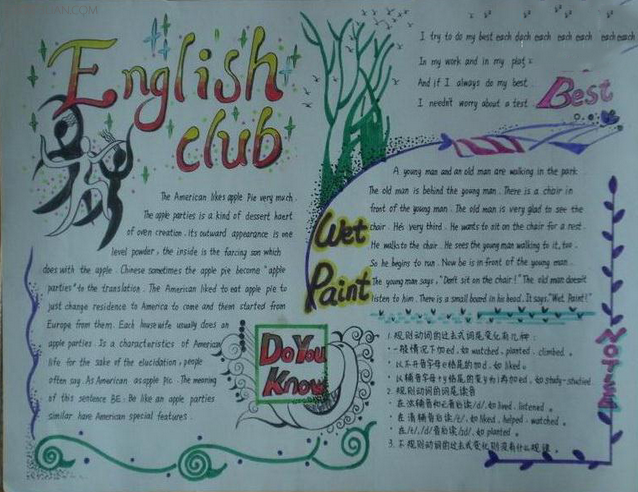 English
club
The American likes apple Pie very much.
The apple parties is a kind of dessert haert
of oven creation. Its outward appearance is one
level powder, the inside is the farcing son which
does with the apple. Chinese sometimes the apple pie become "apple
parties" to the translation. The American liked to eat apple pie to
just change residence to America to come and them started from
Europe from them. Each housewife usually does an
apple parties. Is a characteristics of American
life for the sake of the elucidation, people
often say. As American as apple pie. The meaning
of this sentence BE: Be like an apple parties
similar have American special features.
I try to do my best each dach each each each each each
In my work and in my play
And if I always do my best
I needn't worry about a test
Best
Wet
Paint
A young man and an old man are walking in the park.
The old man is behind the young man. There is a chair in
front of the young man. The old man is very glad to see the
chair. He's very third. He wants to sit on the chair for a rest.
He walks to the chair. He sees the young man walking to it, too.
So he begins to run. Now he is in front of the young man.
The young man says, "Don't sit on the chair!" The old man doesn't
listen to him. There is a small board in his head. It says, "Wet Paint!"
Do You
Know
1. 规则动词的过去式词尾变化有几种:
· 一般情况下加ed, 如 watched, planted, climbed。
· 以不开音字母e结尾的加d, 如 liked。
· 以辅音字母+y结尾的变y为i再加ed, 如 study-studied
2. 规则动词的词尾读音
· 在浊辅音和元音后读/d/, 如 lived, listened。
· 在清辅音后读/t/, 如 liked, helped, watched。
· 在/t/,/d/音后读/id/, 如 planted。
3. 不规则动词的过去式变化则没有什么规律。